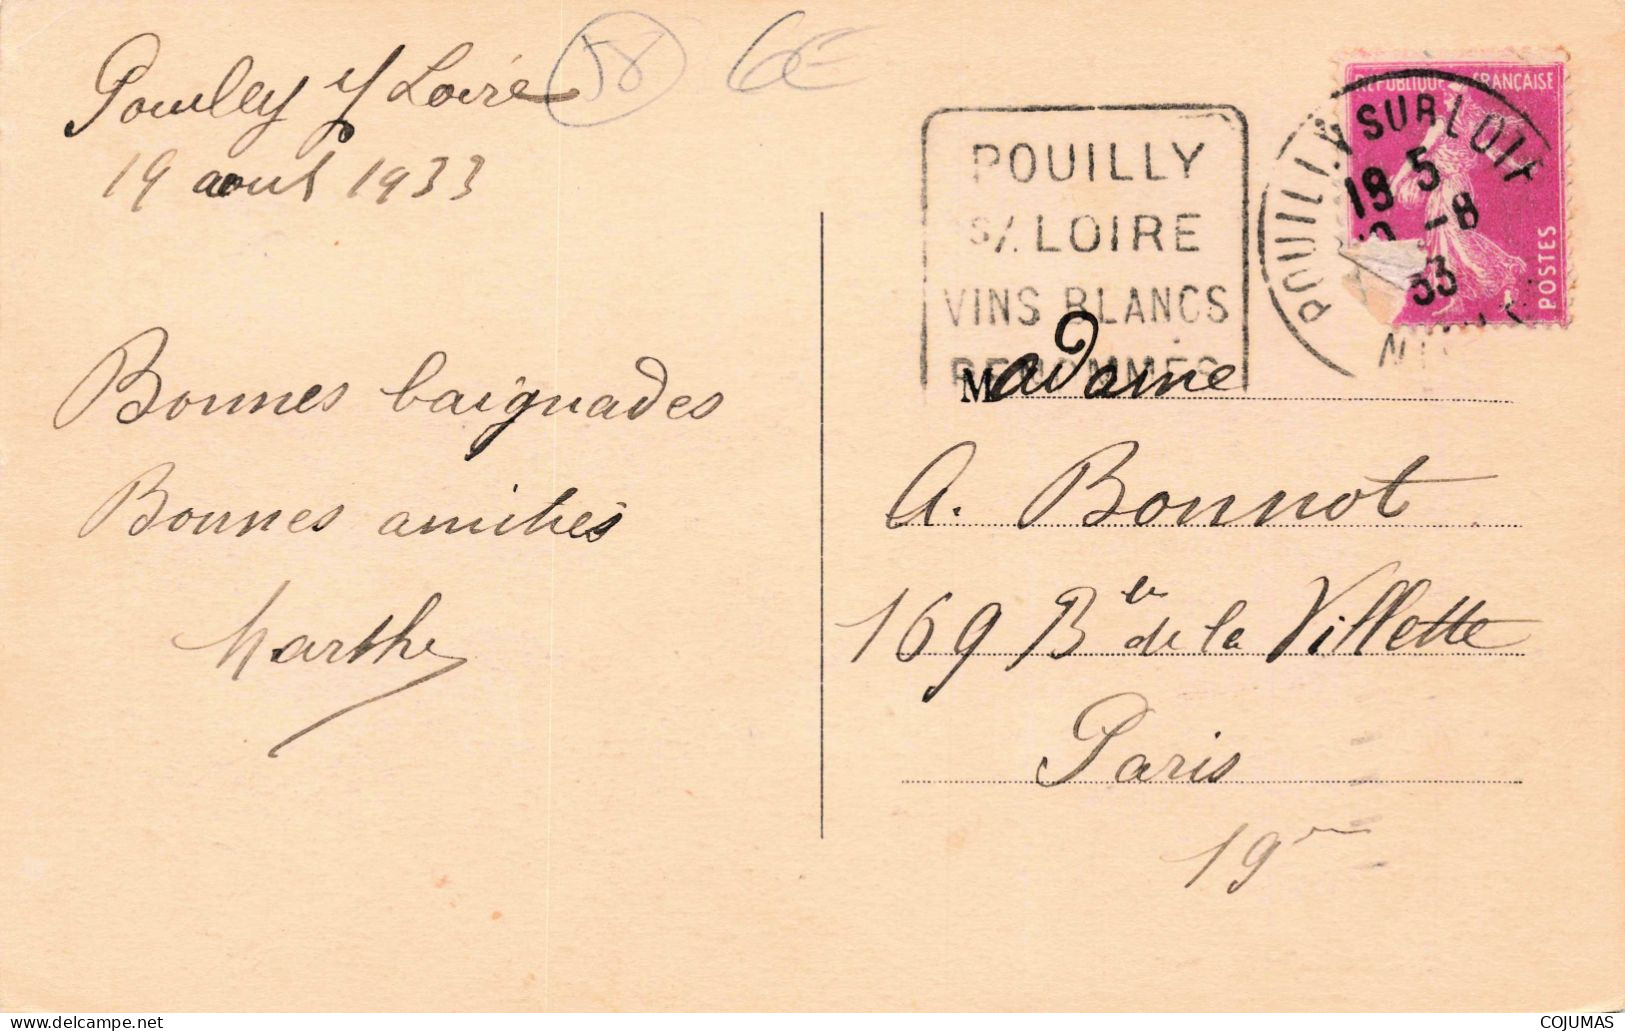 Pouilley s/ Loire
19 aout 1933
58
6E
Bonnes baignades
Bonnes amitiés
Marthe
POUILLY
S/. LOIRE
VINS BLANCS
RENOMMÉS
POUILLY SUR LOIRE
18 5
-8
33
RÉPUBLIQUE FRANÇAISE
POSTES
Madame
A. Bonnot
169 Bd de la Villette
Paris
19
www.delcampe.net
COJUMAS